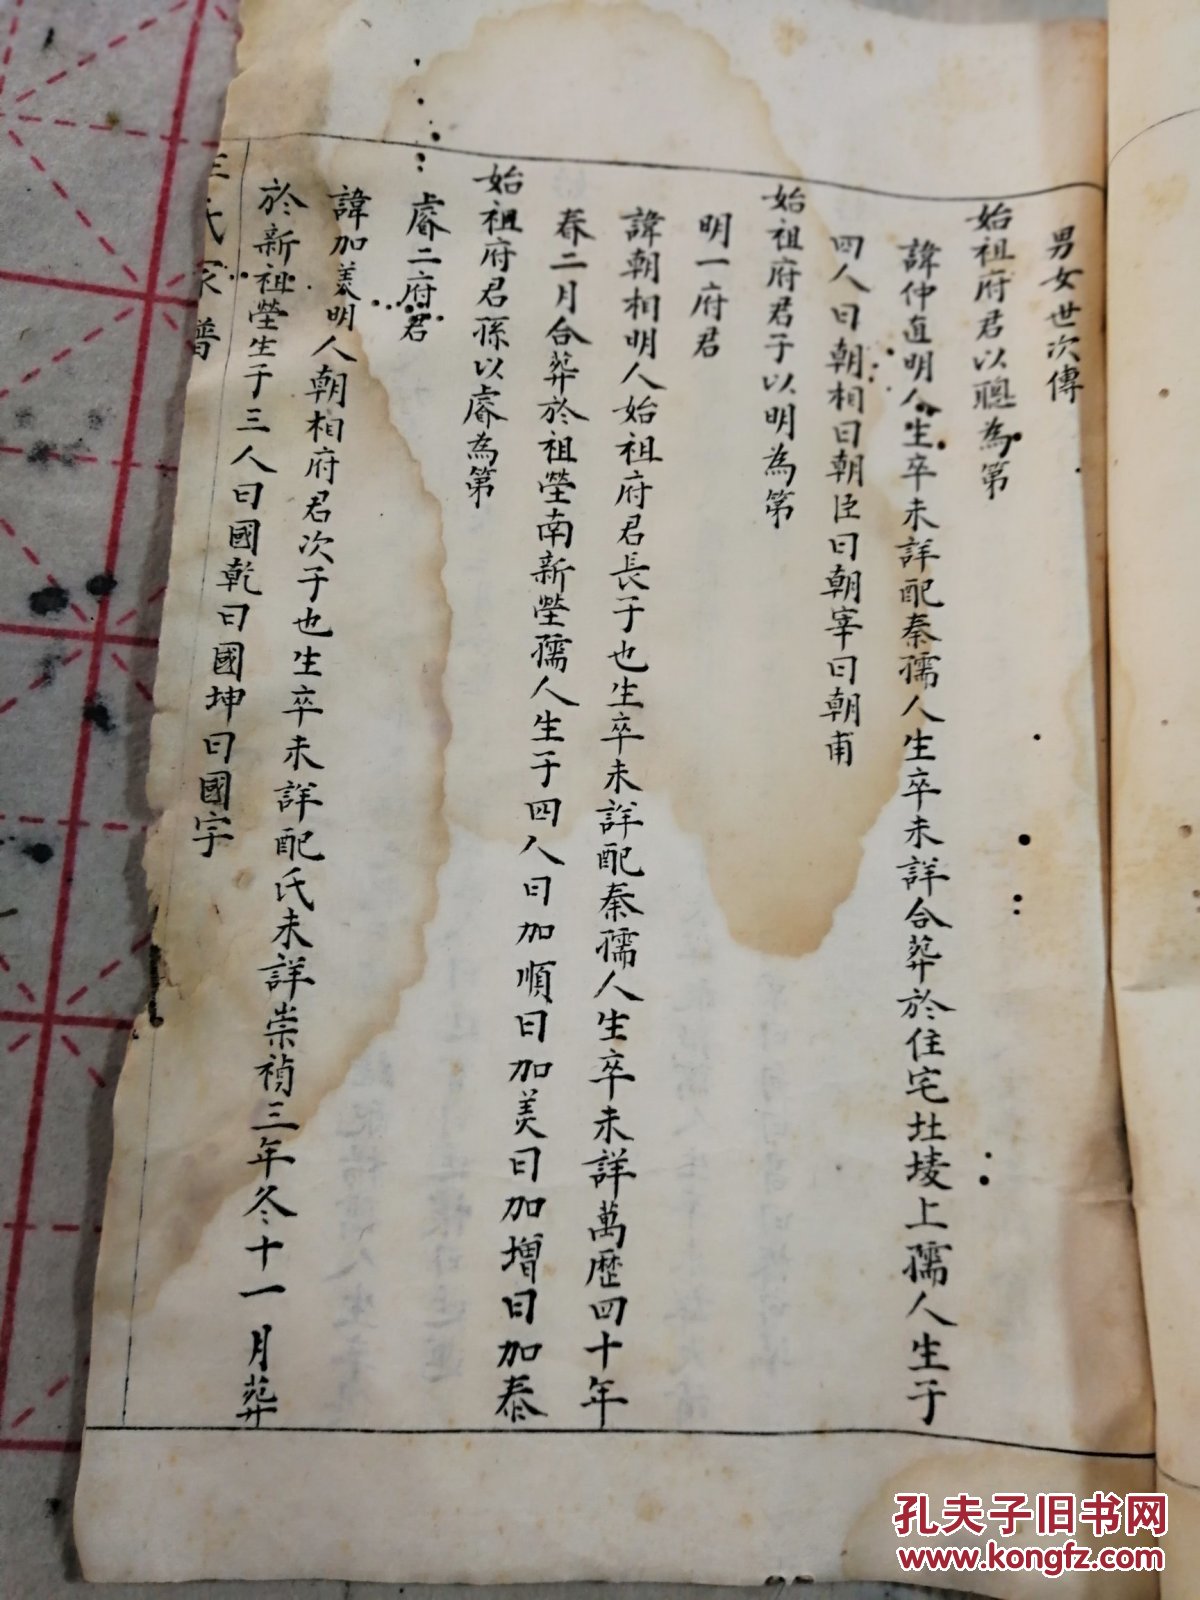 男女世次傳
始祖府君以聰為第
諱仲直明人生卒未詳配秦孺人生卒未詳合葬於住宅北堎上孺人生子
四人曰朝相曰朝臣曰朝宰曰朝甫
始祖府君子以明為第
明一府君
諱朝相明人始祖府君長子也生卒未詳配秦孺人生卒未詳萬歷四十年
春二月合葬於祖塋南新塋孺人生子四人曰加順曰加美曰加增曰加泰
始祖府君孫以睿為第
睿二府君
諱加美明人朝相府君次子也生卒未詳配氏未詳崇禎三年冬十一月葬
於新祖塋生子三人曰國乾曰國坤曰國字
氏家譜
孔夫子旧书网
www.kongfz.com